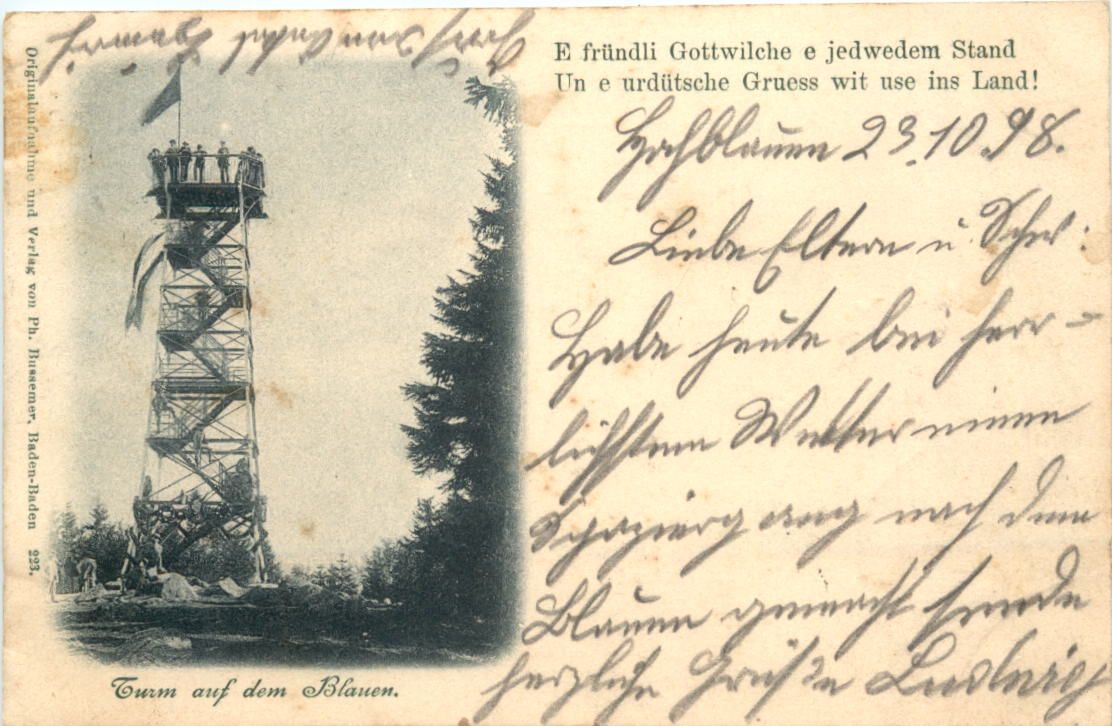 E fründli Gottwilche e jedwedem Stand
Un e urdütsche Gruess wit use ins Land!
Hochblauen 23.10.98.
Liebe Eltern u. Schw:
Habe heute bei herr-
lichstem Wetter einen
Spaziergang nach dem
Blauen gemacht sende
herzliche Grüße Ludwig
Turm auf dem Blauen.
Originalaufnahme und Verlag von Ph. Bussemer, Baden-Baden 223.